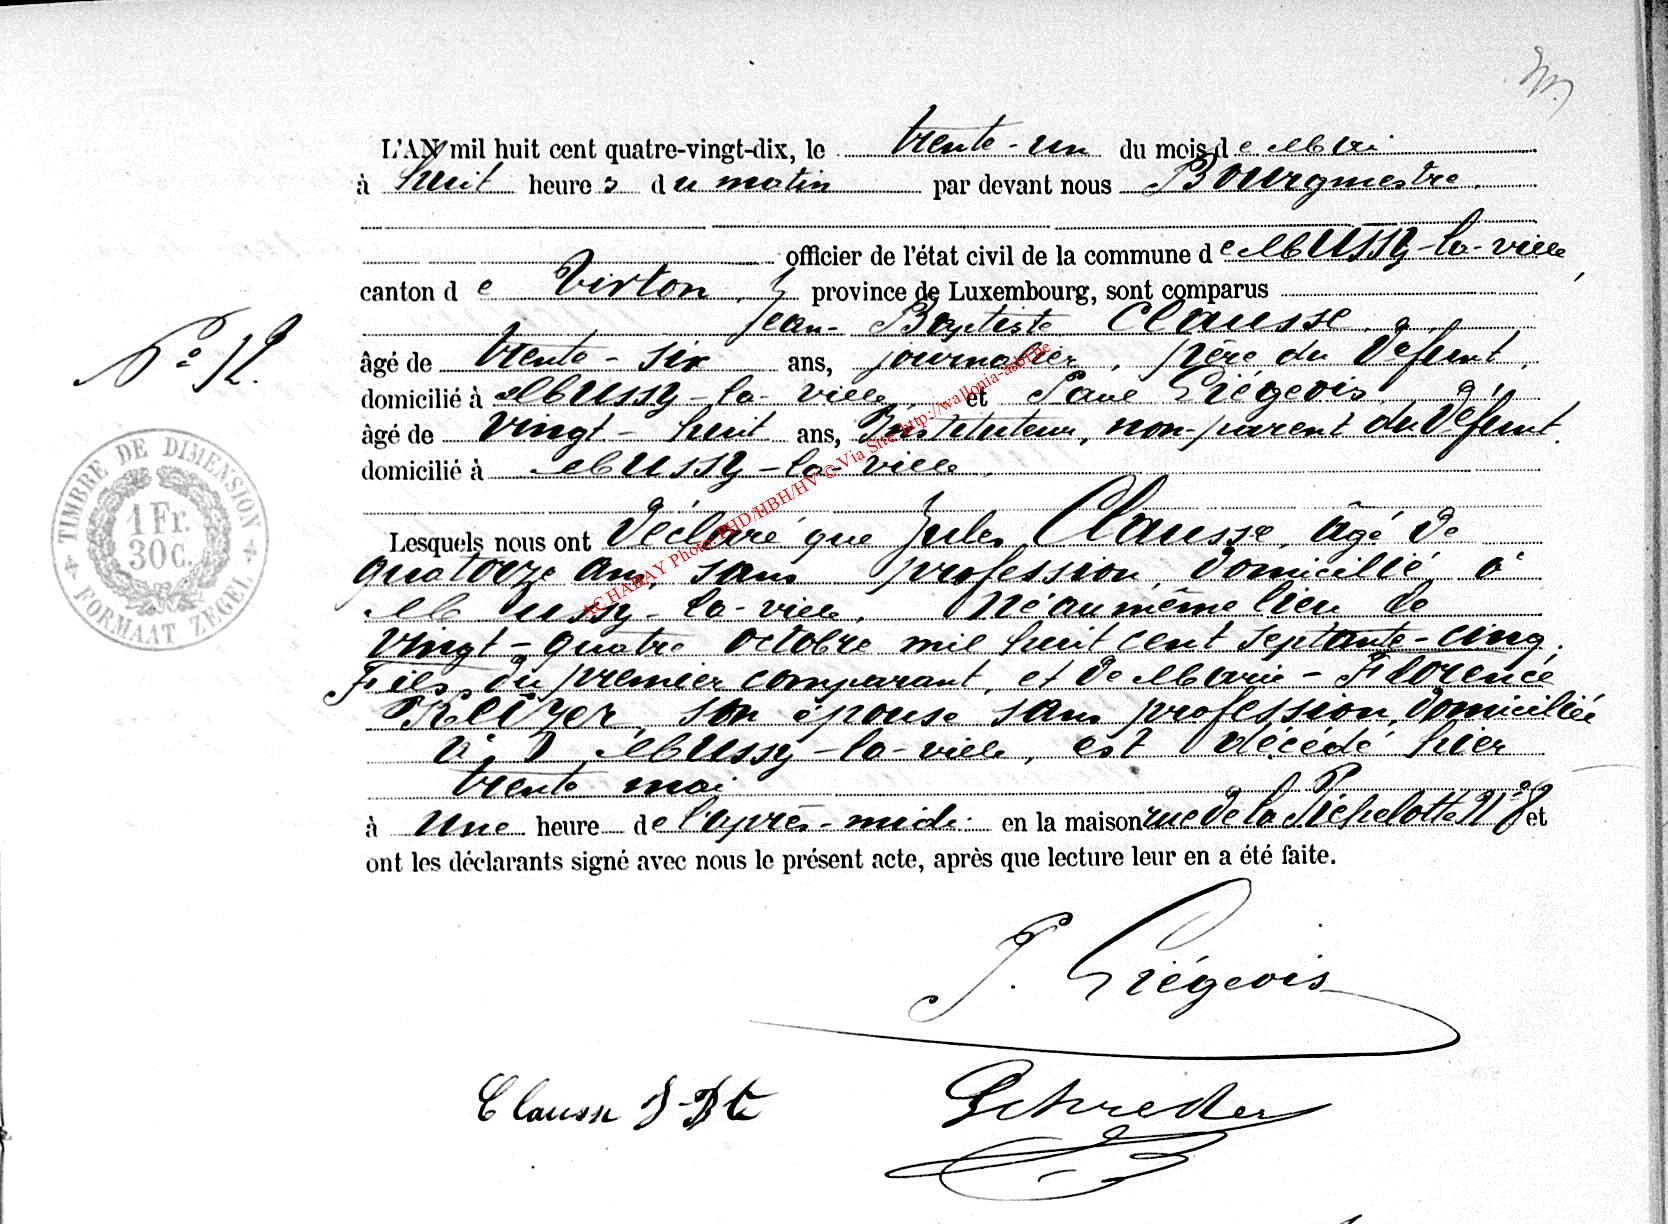 L'AN mil huit cent quatre-vingt-dix, le trente-un du mois de Mai
à huit heures du matin par devant nous Bourgmestre
officier de l'état civil de la commune de Mussy-la-ville,
canton de Virton, province de Luxembourg, sont comparus
Jean-Baptiste Clausse,
N° 12.
âgé de trente-six ans, journalier, père du défunt,
domicilié à Mussy-la-ville, et Paul Liégeois,
âgé de vingt-huit ans, Instituteur, non-parent du défunt.
domicilié à Mussy-la-ville,
Lesquels nous ont déclaré que Jules Clausse, âgé de
quatorze ans, sans profession, domicilié à
Mussy-la-ville, né au même lieu le
vingt-quatre octobre mil huit cent septante-cinq,
Fils du premier comparant, et de Marie-Florence
son épouse sans profession, domiciliée
Mussy-la-ville, est décédé hier
trente mai
à une heure de l'après-midi en la maison rue de la Pichelotte N° 8 et
ont les déclarants signé avec nous le présent acte, après que lecture leur en a été faite.
P. Liégeois
Clausse J-Bte
Schreder
TIMBRE DE DIMENSION
1 Fr.
30 c.
FORMAAT ZEGEL
AC HABAY Photo: PHD/HBH/HV © Via Site http://wallonia-asbl.be